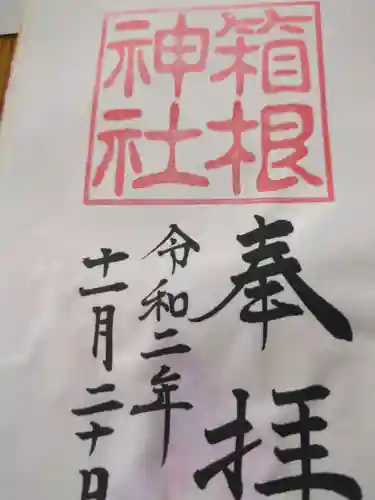 箱根
神社
奉拝
令和二年
十一月二十日